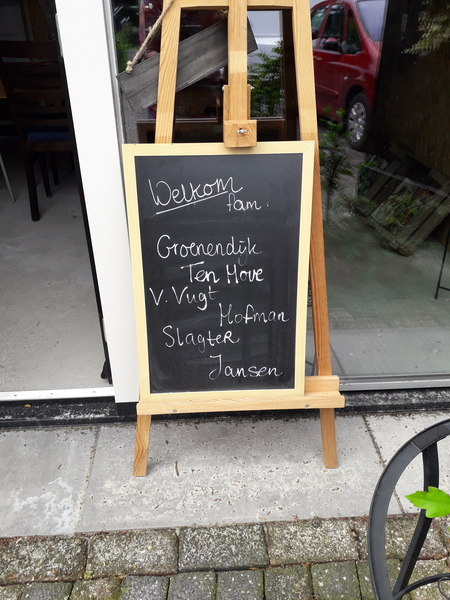 Welkom
fam.
Groenendijk
Ten Hove
V. Vugt
Hofman
Slagter
Jansen